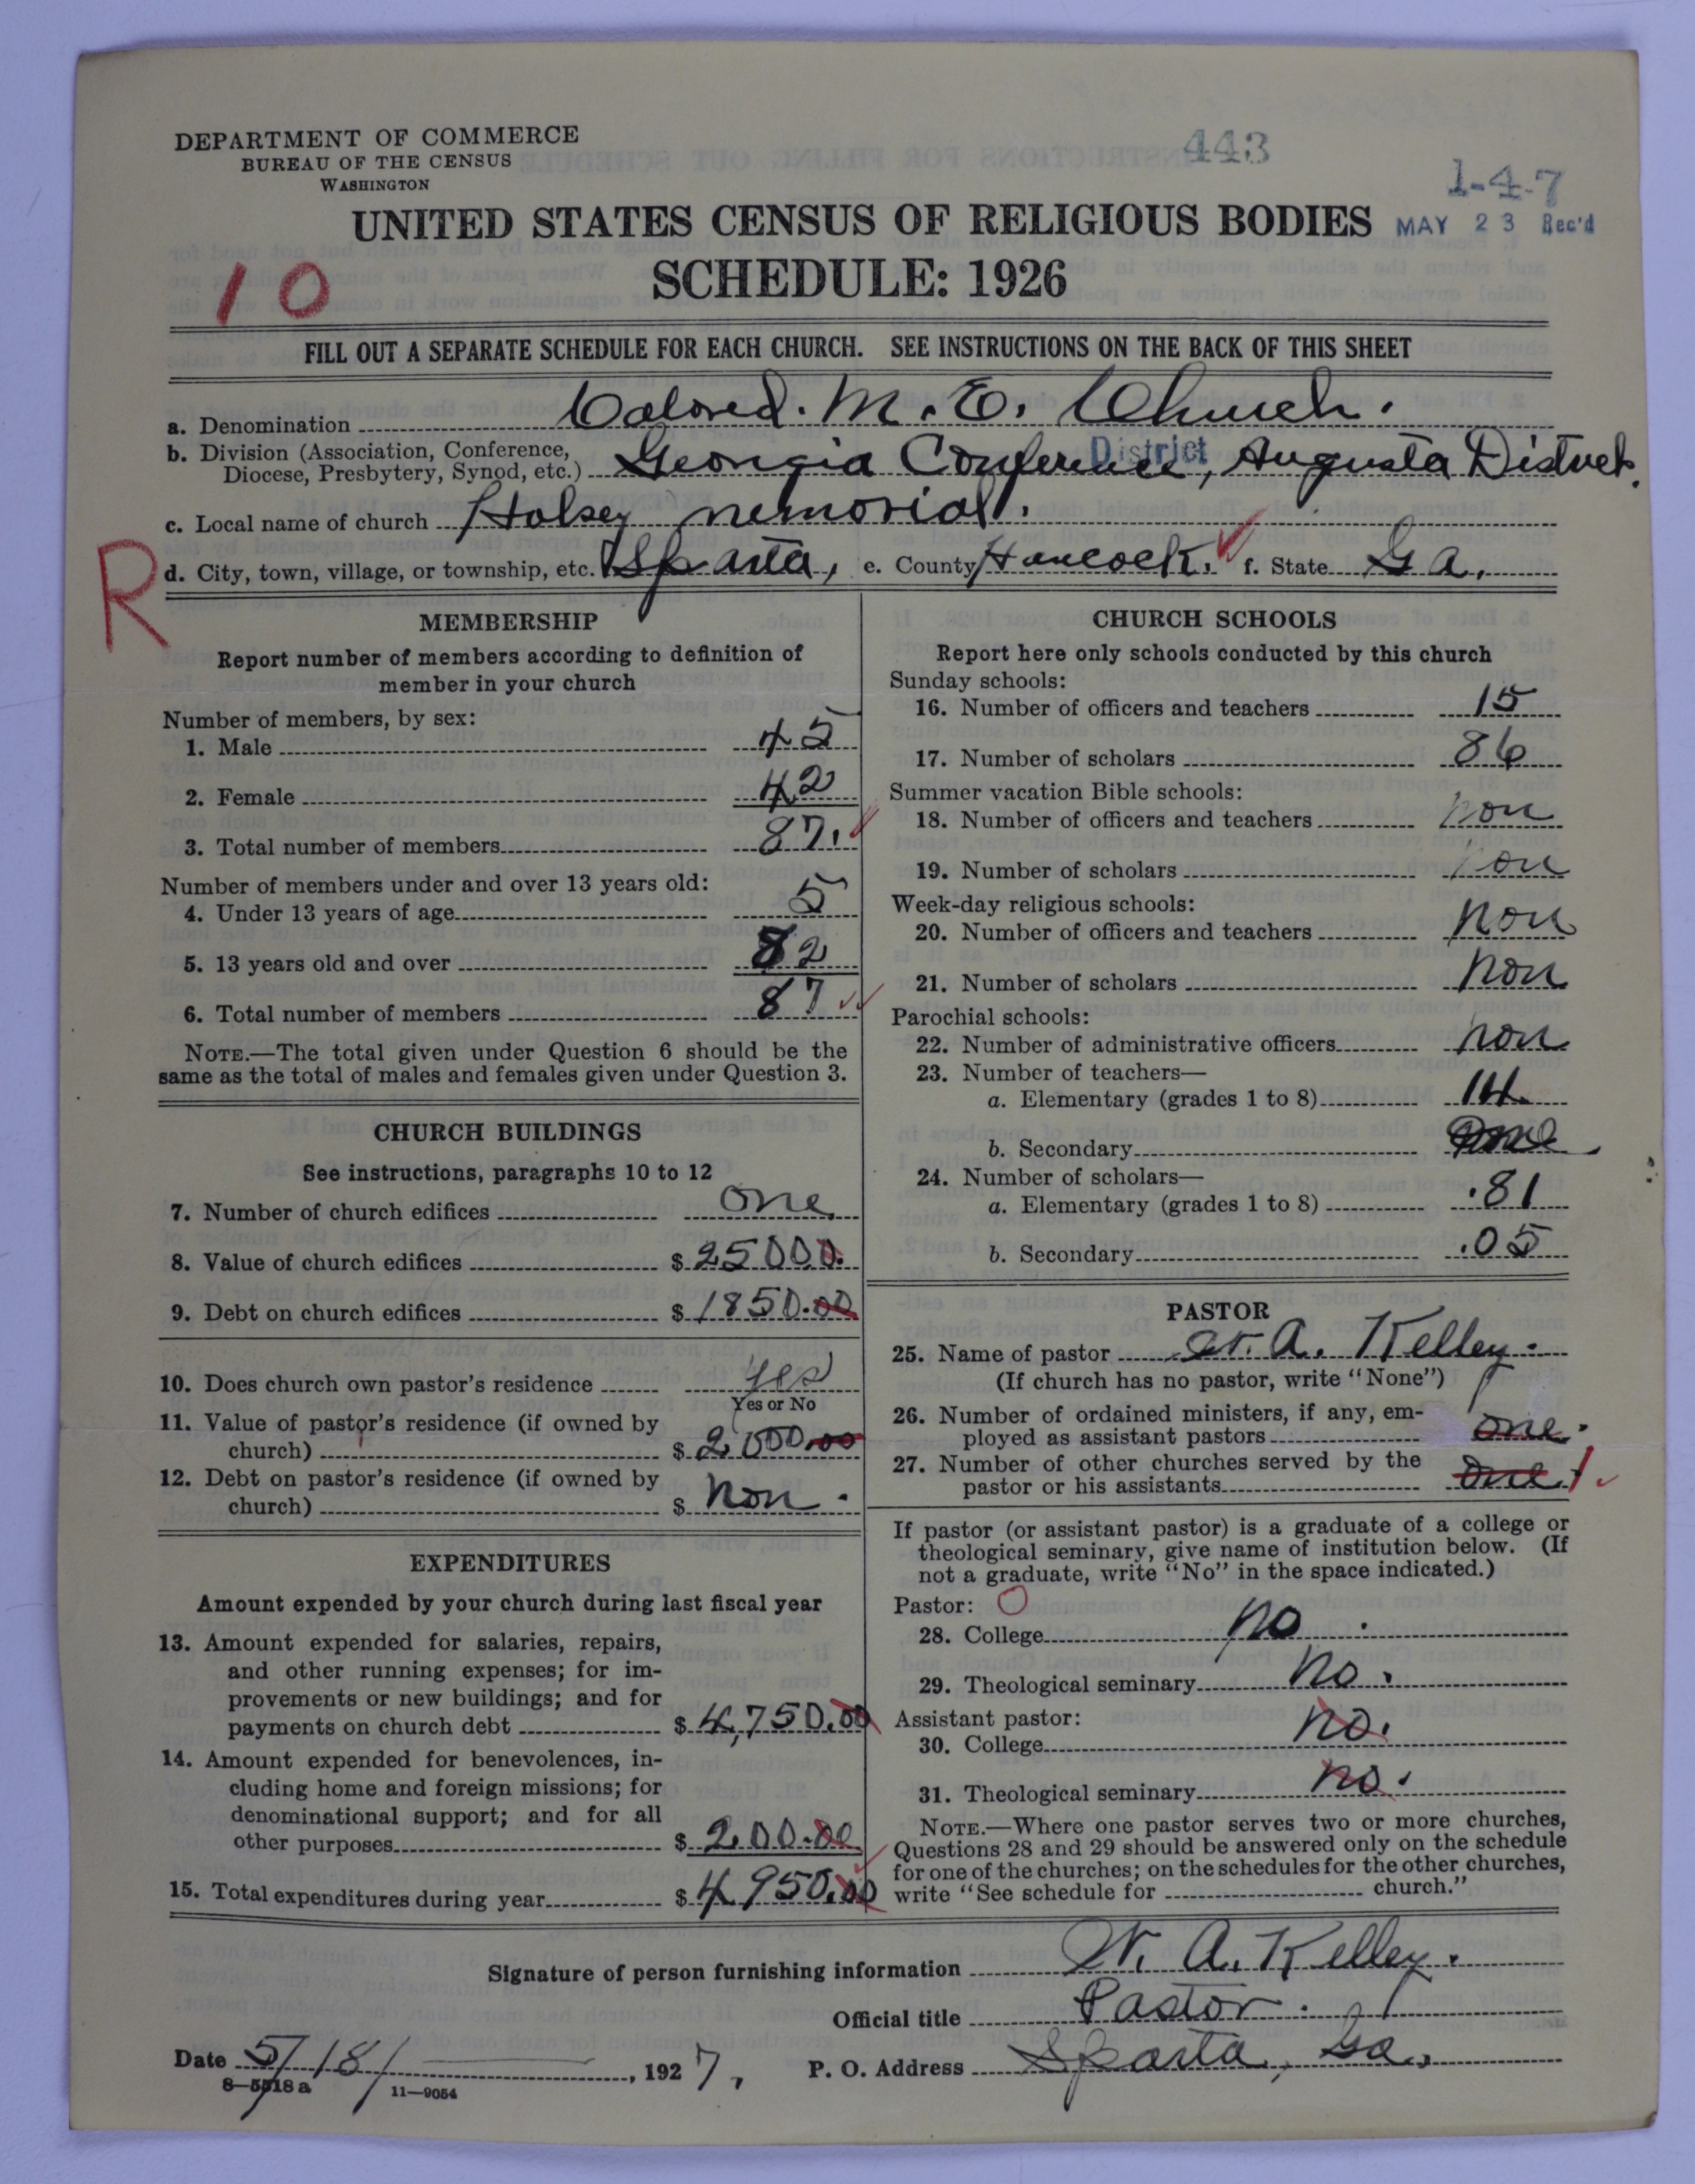 DEPARTMENT OF COMMERCE
BUREAU OF THE CENSUS
WASHINGTON
443
1-4-7
UNITED STATES CENSUS OF RELIGIOUS BODIES
MAY 23 Rec'd
SCHEDULE: 1926
10
FILL OUT A SEPARATE SCHEDULE FOR EACH CHURCH. SEE INSTRUCTIONS ON THE BACK OF THIS SHEET
a. Denomination Colored. M. E. Church.
b. Division (Association, Conference,
Diocese, Presbytery, Synod, etc.) Georgia Conference, Augusta District.
District
c. Local name of church Holsey memorial.
R
d. City, town, village, or township, etc. Sparta, e. County Hancock. f. State Ga.
MEMBERSHIP
Report number of members according to definition of
member in your church
Number of members, by sex:
1. Male 45
2. Female 42
3. Total number of members 87.
Number of members under and over 13 years old:
4. Under 13 years of age 5
5. 13 years old and over 82
6. Total number of members 87
NOTE.—The total given under Question 6 should be the
same as the total of males and females given under Question 3.
CHURCH BUILDINGS
See instructions, paragraphs 10 to 12
7. Number of church edifices one
8. Value of church edifices $ 25000.
9. Debt on church edifices $ 1850.00
10. Does church own pastor's residence yes
Yes or No
11. Value of pastor's residence (if owned by
church) $ 2,000.00
12. Debt on pastor's residence (if owned by
church) $ Non.
EXPENDITURES
Amount expended by your church during last fiscal year
13. Amount expended for salaries, repairs,
and other running expenses; for im-
provements or new buildings; and for
payments on church debt $ 4,750.00
14. Amount expended for benevolences, in-
cluding home and foreign missions; for
denominational support; and for all
other purposes $ 200.00
15. Total expenditures during year $ 4950.00
CHURCH SCHOOLS
Report here only schools conducted by this church
Sunday schools:
16. Number of officers and teachers 15
17. Number of scholars 86
Summer vacation Bible schools:
18. Number of officers and teachers non
19. Number of scholars non
Week-day religious schools:
20. Number of officers and teachers non
21. Number of scholars non
Parochial schools:
22. Number of administrative officers non
23. Number of teachers—
a. Elementary (grades 1 to 8) 14
b. Secondary
24. Number of scholars—
a. Elementary (grades 1 to 8) .81
b. Secondary .05
PASTOR
25. Name of pastor W. A. Kelley.
(If church has no pastor, write "None")
26. Number of ordained ministers, if any, em-
ployed as assistant pastors one.
27. Number of other churches served by the
pastor or his assistants one. 1
If pastor (or assistant pastor) is a graduate of a college or
theological seminary, give name of institution below. (If
not a graduate, write "No" in the space indicated.)
Pastor: O
28. College no.
29. Theological seminary no.
Assistant pastor:
30. College no.
31. Theological seminary no.
NOTE.—Where one pastor serves two or more churches,
Questions 28 and 29 should be answered only on the schedule
for one of the churches; on the schedules for the other churches,
write "See schedule for church."
Signature of person furnishing information W. A. Kelley.
Official title Pastor.
Date 5/18/, 1927, P. O. Address Sparta, Ga.
8—5518a 11—9054